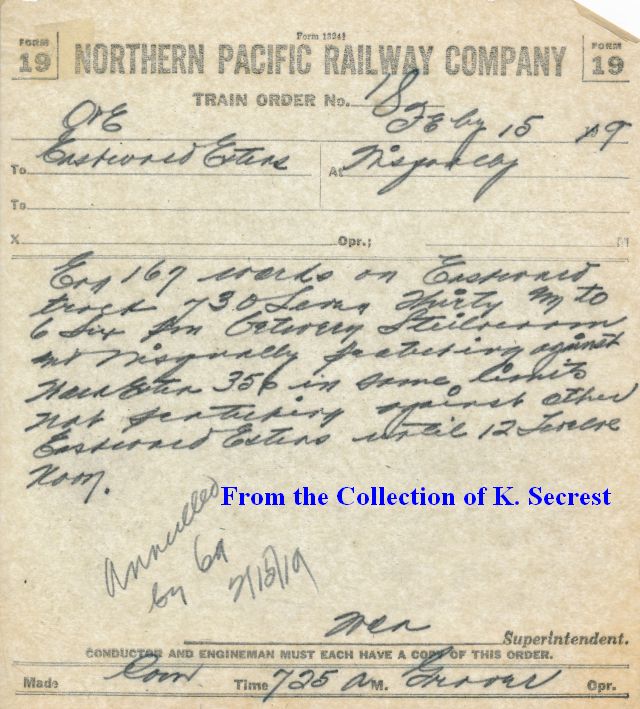 Form 1324½
FORM 19
NORTHERN PACIFIC RAILWAY COMPANY
FORM 19
TRAIN ORDER No. 18
Feby 15 19
C&E
To Eastward Extras At Nisqually
To
X Opr.; M
Eng 167 works on Eastward
track 730 Seven thirty am to
6 Six Pm between Steilacoom
and Nisqually protecting against
Extra 356 in same limits
not protecting against other
Eastward Extras until 12 Twelve
Noon.
From the Collection of K. Secrest
Annulled
by 69
2/15/19
Superintendent.
CONDUCTOR AND ENGINEMAN MUST EACH HAVE A COPY OF THIS ORDER.
Made Com Time 725 AM. Opr.